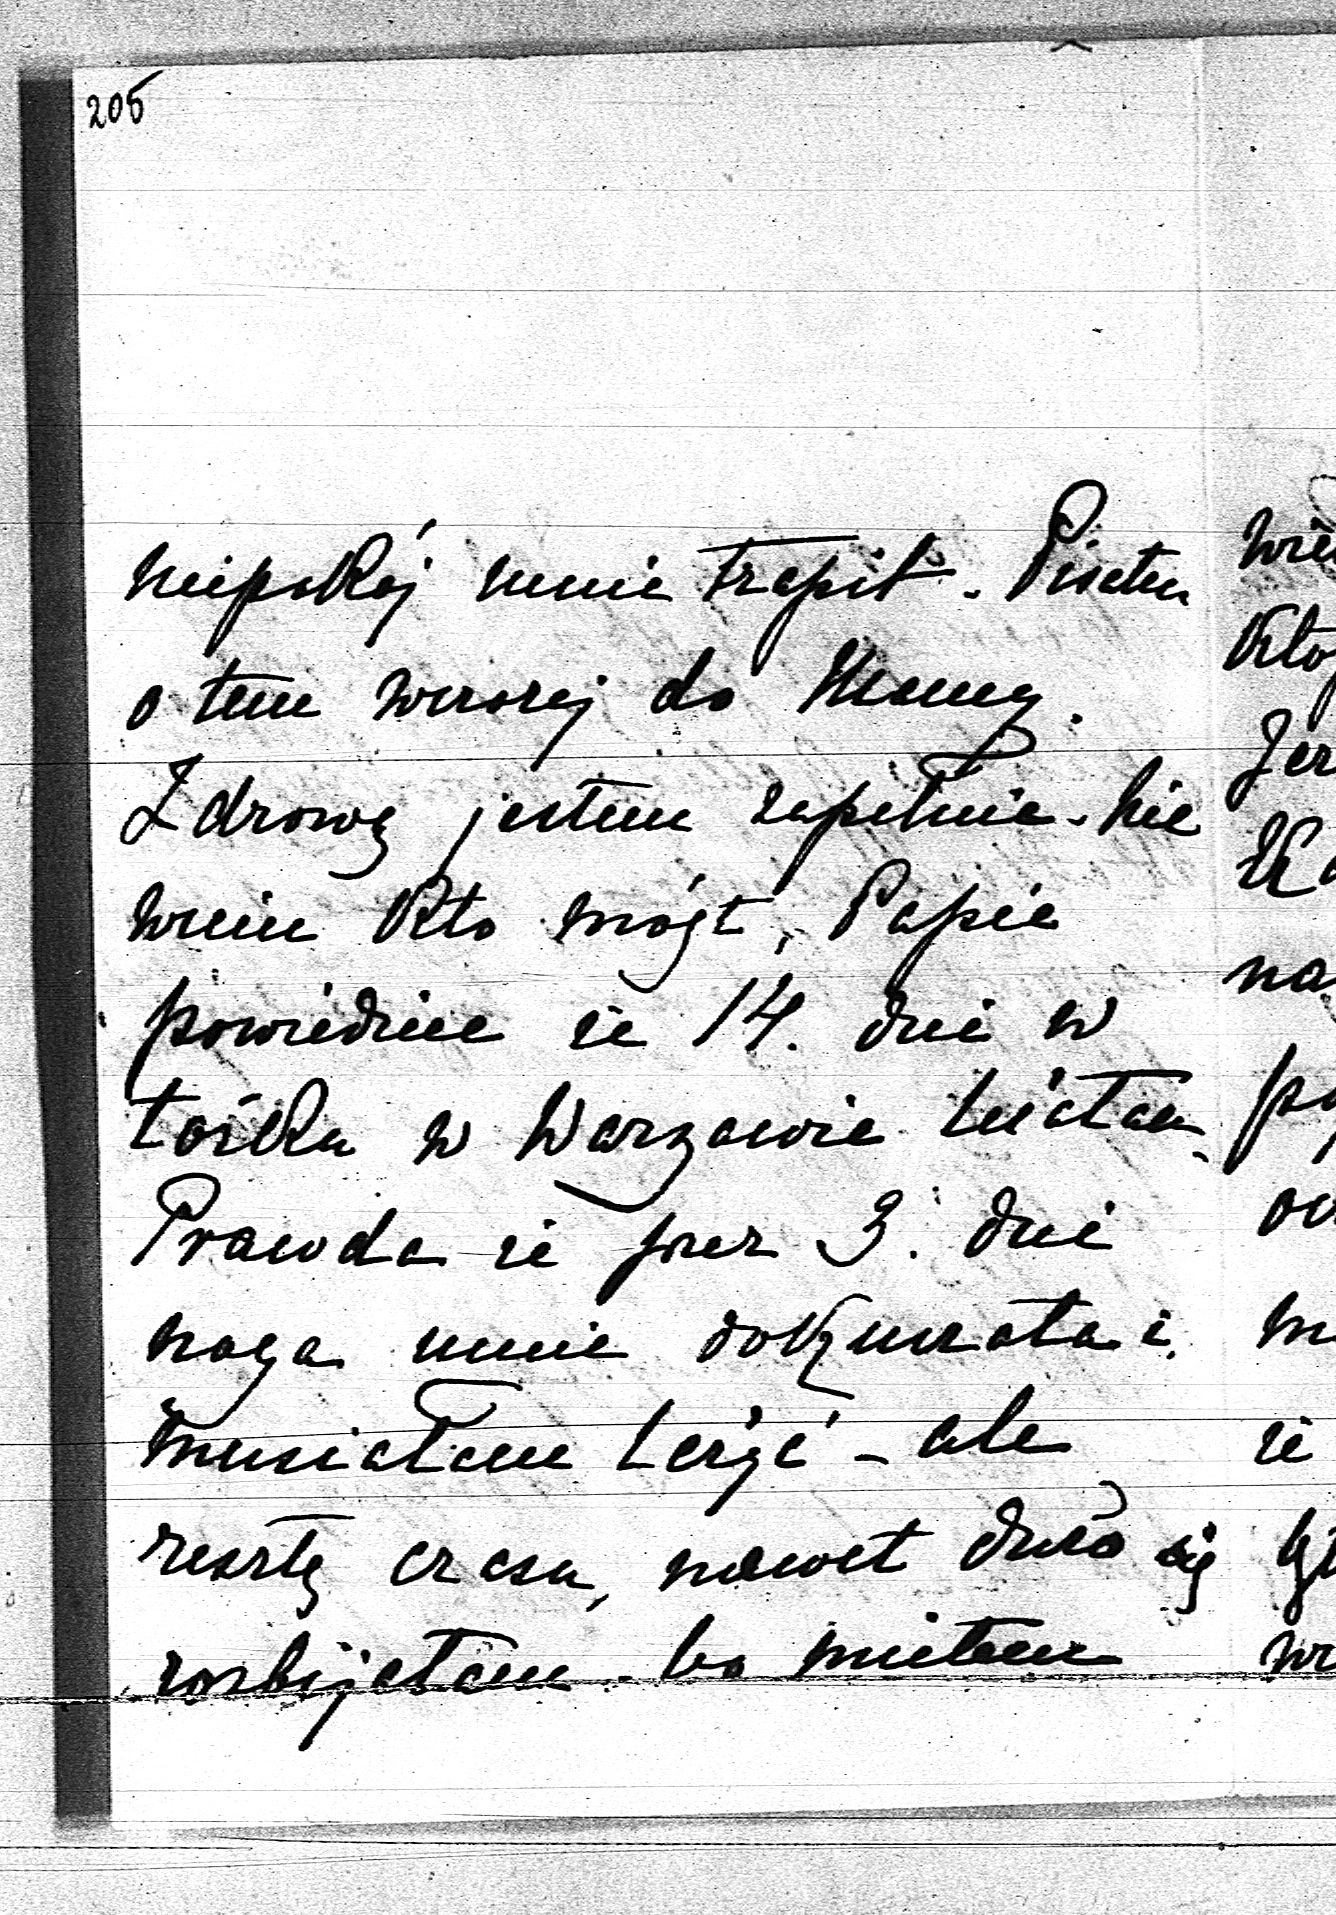 205
niepokój mnie trapił. Pisałem
o tem wczoraj do Mamy.
Zdrową jestem zupełnie. Nie
wiem kto mógł, Papie
powiedzieć że 14. dni w
łóżku w Warszawie leżałam.
Prawda że przez 3. dni
noga mnie dokuczała i
musiałam leżyć – ale
resztę czasu, nawet dużo się
rozbijałam. bo miałam